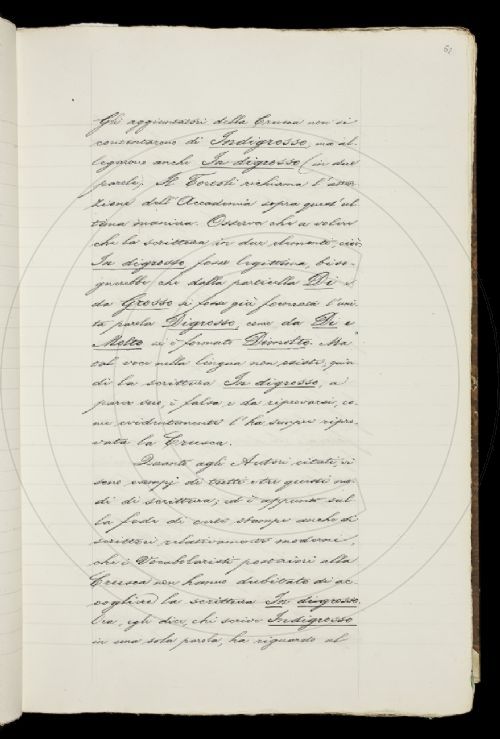 61
Gli aggiuntatori della Crusca non si
contentarono di Indigrosso, ma al-
legarono anche In digrosso (in due
parole). Il Torcoli richiama l'atten-
zione dell'Accademia sopra quest'ul-
tima maniera. Osserva che a voler
che la scrittura in due elementi, cioè
In digrosso fosse legittima, biso-
gnerebbe che dalla particella Di e
da Grosso si fosse già formata l'uni-
ta parola Digrosso, come da Di e
Molto si è formato Dimolto. Ma
tal voce nella lingua non esiste, quin
di la scrittura In digrosso, a
parer suo, è falsa e da riprovarsi, co-
me evidentemente l'ha sempre ripro-
vata la Crusca.
Quanto agli Autori citati, vi
sono esempj di tutti e tre questi mo-
di di scrittura; ed è appunto sul
la fede di certe stampe anche di
scrittori relativamente moderni,
che i Vocabolaristi posteriori alla
Crusca non hanno dubitato di ac-
cogliere) la scrittura In digrosso.
Ora, egli dice, chi scrive Indigrosso
in una sola parola, ha riguardo al